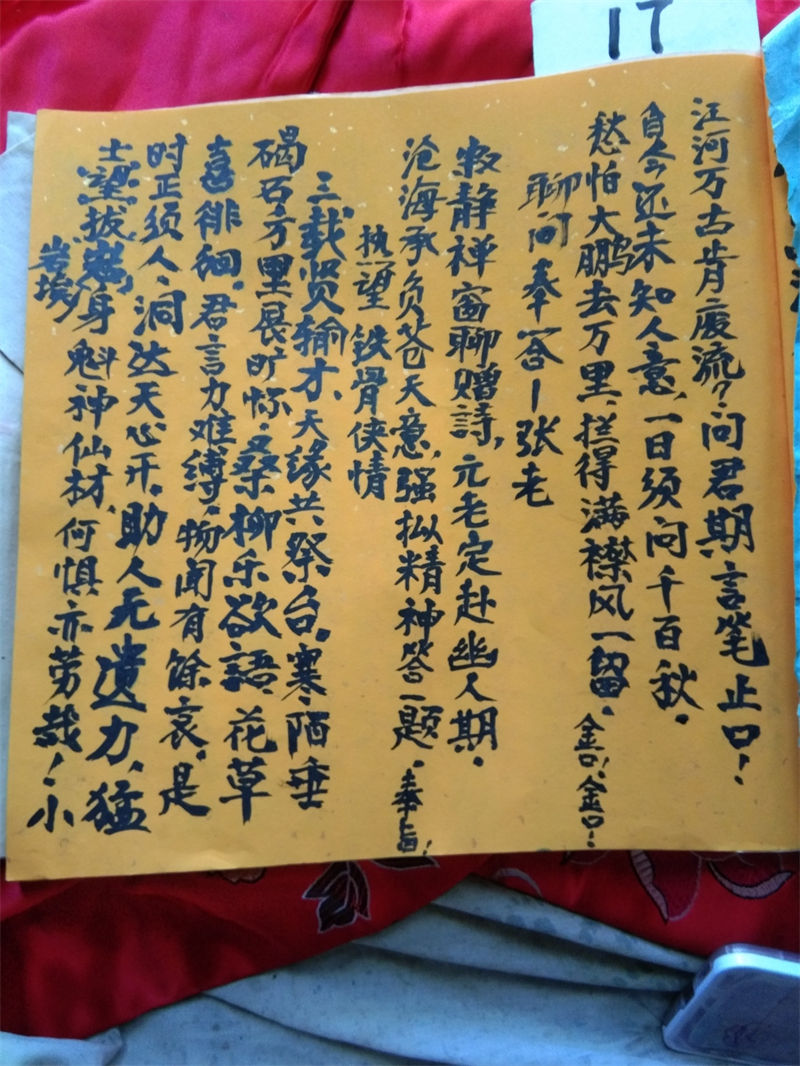 17
江河万古肯废流？问君期言笔止口！
自今还未知人意，一日须问千百秋。
愁怕大鹏去万里，拦得满襟风一留。金口！金口！
聊问奉答一张老
寂静禅窗聊赠詩，元老定赴幽人期。
沧海承负苍天意，强拟精神答一题。奉旨！
执望铁骨侠情
三载贤输才，天缘共祭台。寒陋垂
碣石方里展旷怀。桑柳乐欲語，花草
喜徘徊。君言力难缚。物闻有馀哀。是
时正须人，洞达天心开。助人无遗力，猛
士望拔
身魁神仙材，何惧亦劳哉！小
岩埃